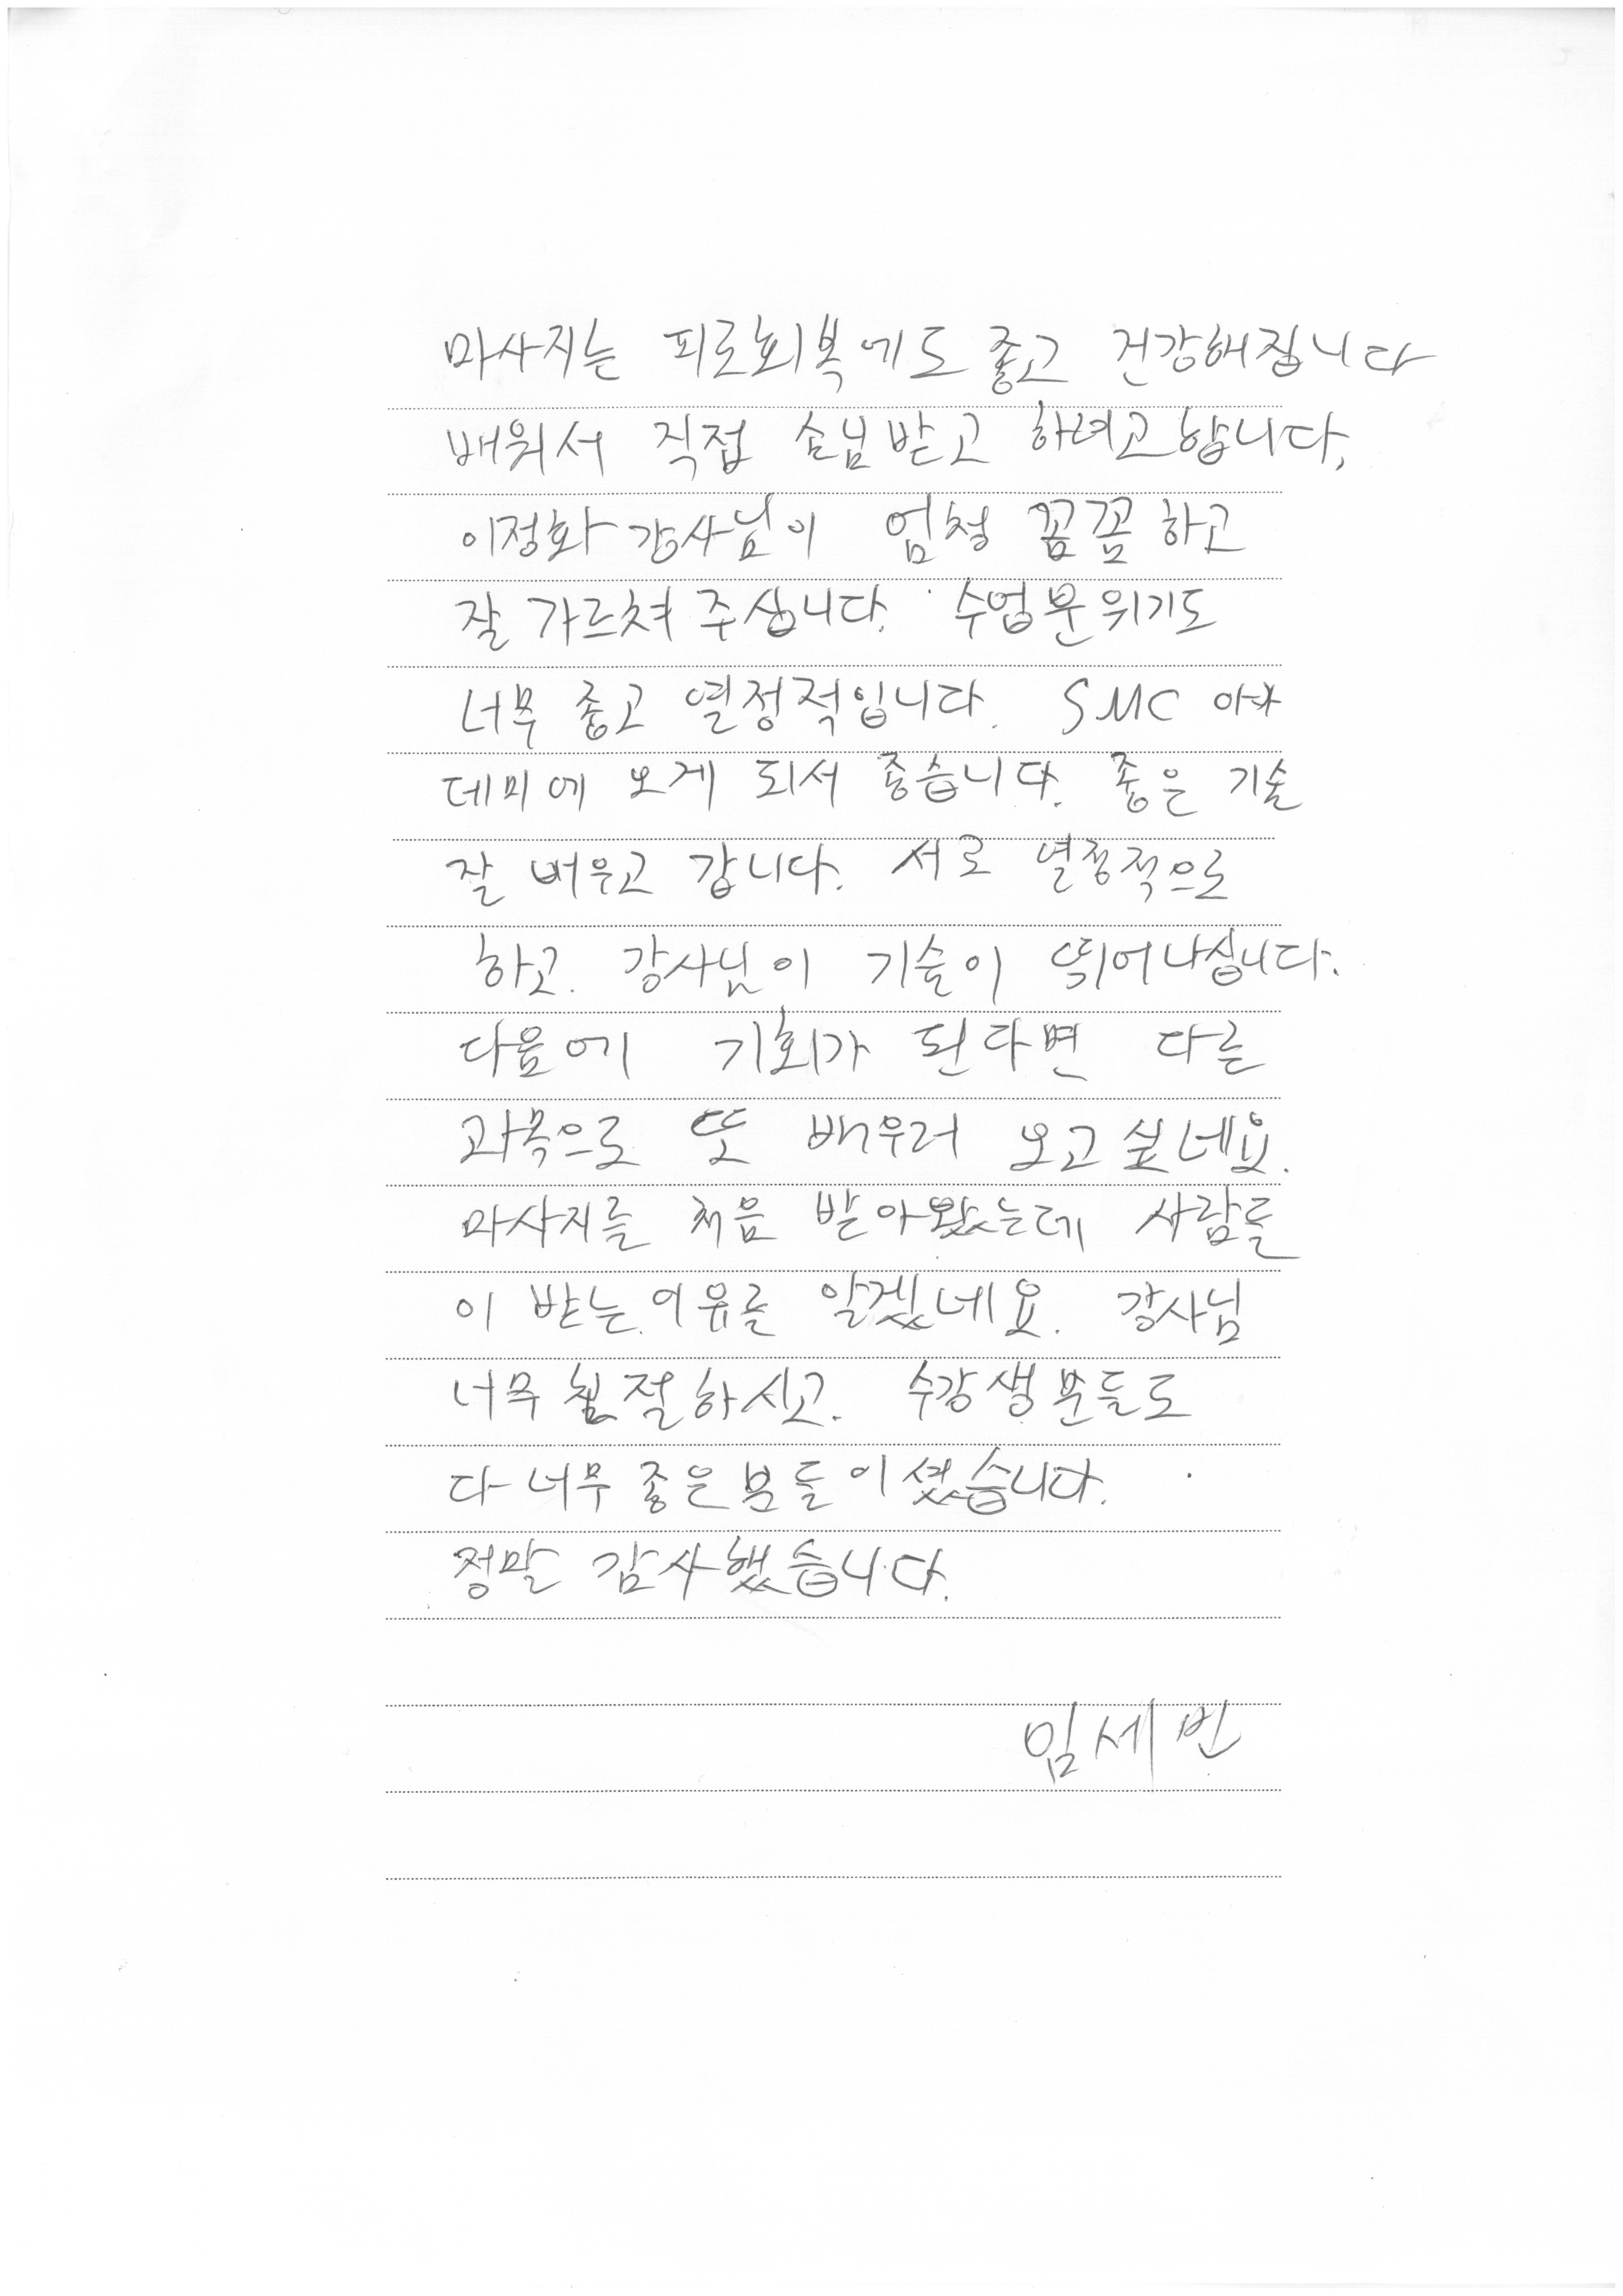 마사지는 피로회복에도 좋고 건강해집니다
배워서 직접 손님받고 하려고합니다.
이정화 강사님이 엄청 꼼꼼하고
잘 가르쳐 주십니다. 수업분위기도
너무 좋고 열정적입니다. SMC 아카
데미에 오게 되서 좋습니다. 좋은 기술
잘 배우고 갑니다. 서로 열정적으로
하고. 강사님이 기술이 띄어나십니다.
다음에 기회가 된다면 다른
과목으로 또 배우러 오고싶네요.
마사지를 처음 받아봤는데 사람들
이 받는 이유를 알겠네요. 강사님
너무 친절하시고. 수강생분들도
다 너무 좋은분들이셨습니다.
정말 감사했습니다.
임세빈